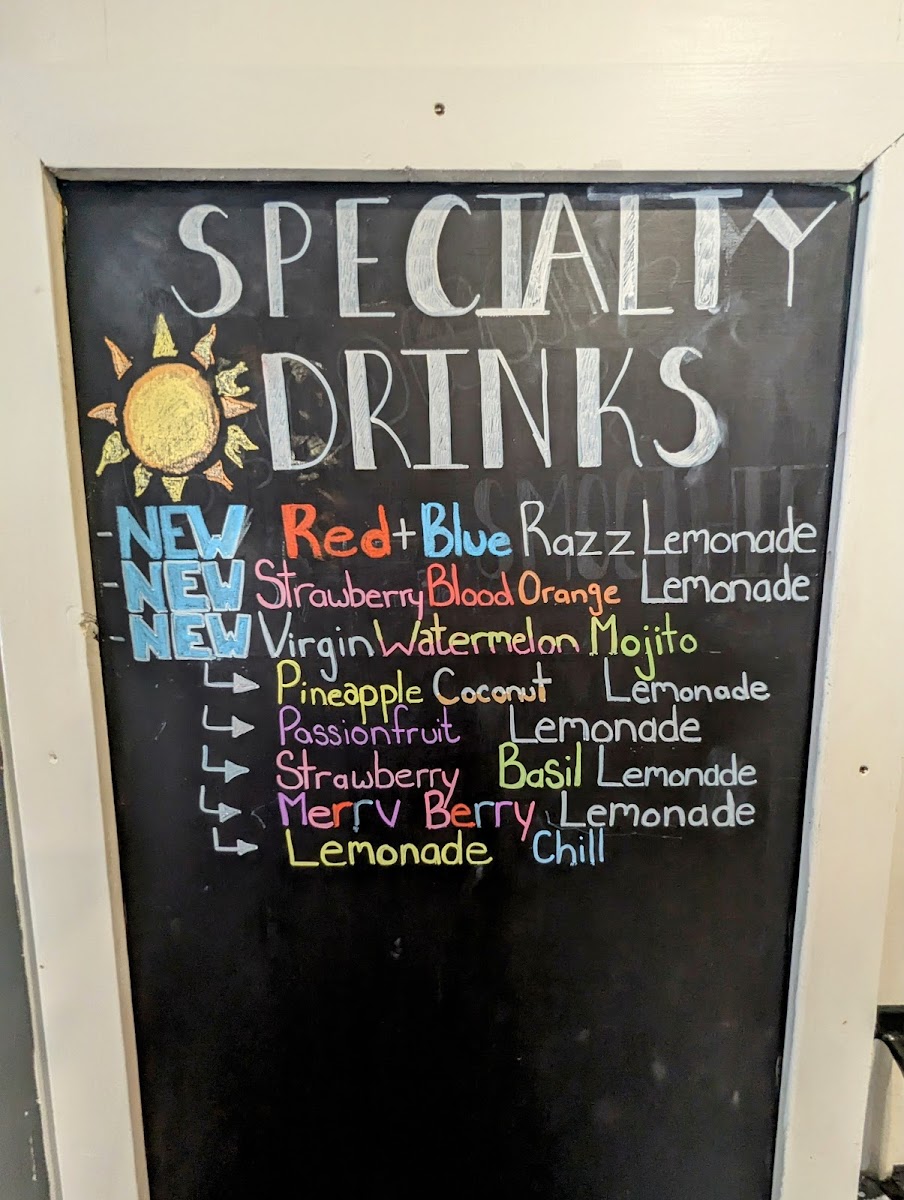 SPECIALTY
DRINKS
SMOOTHIE
- NEW Red + Blue Razz Lemonade
- NEW Strawberry Blood Orange Lemonade
- NEW Virgin Watermelon Mojito
Pineapple Coconut Lemonade
Passionfruit Lemonade
Strawberry Basil Lemonade
Merry Berry Lemonade
Lemonade Chill